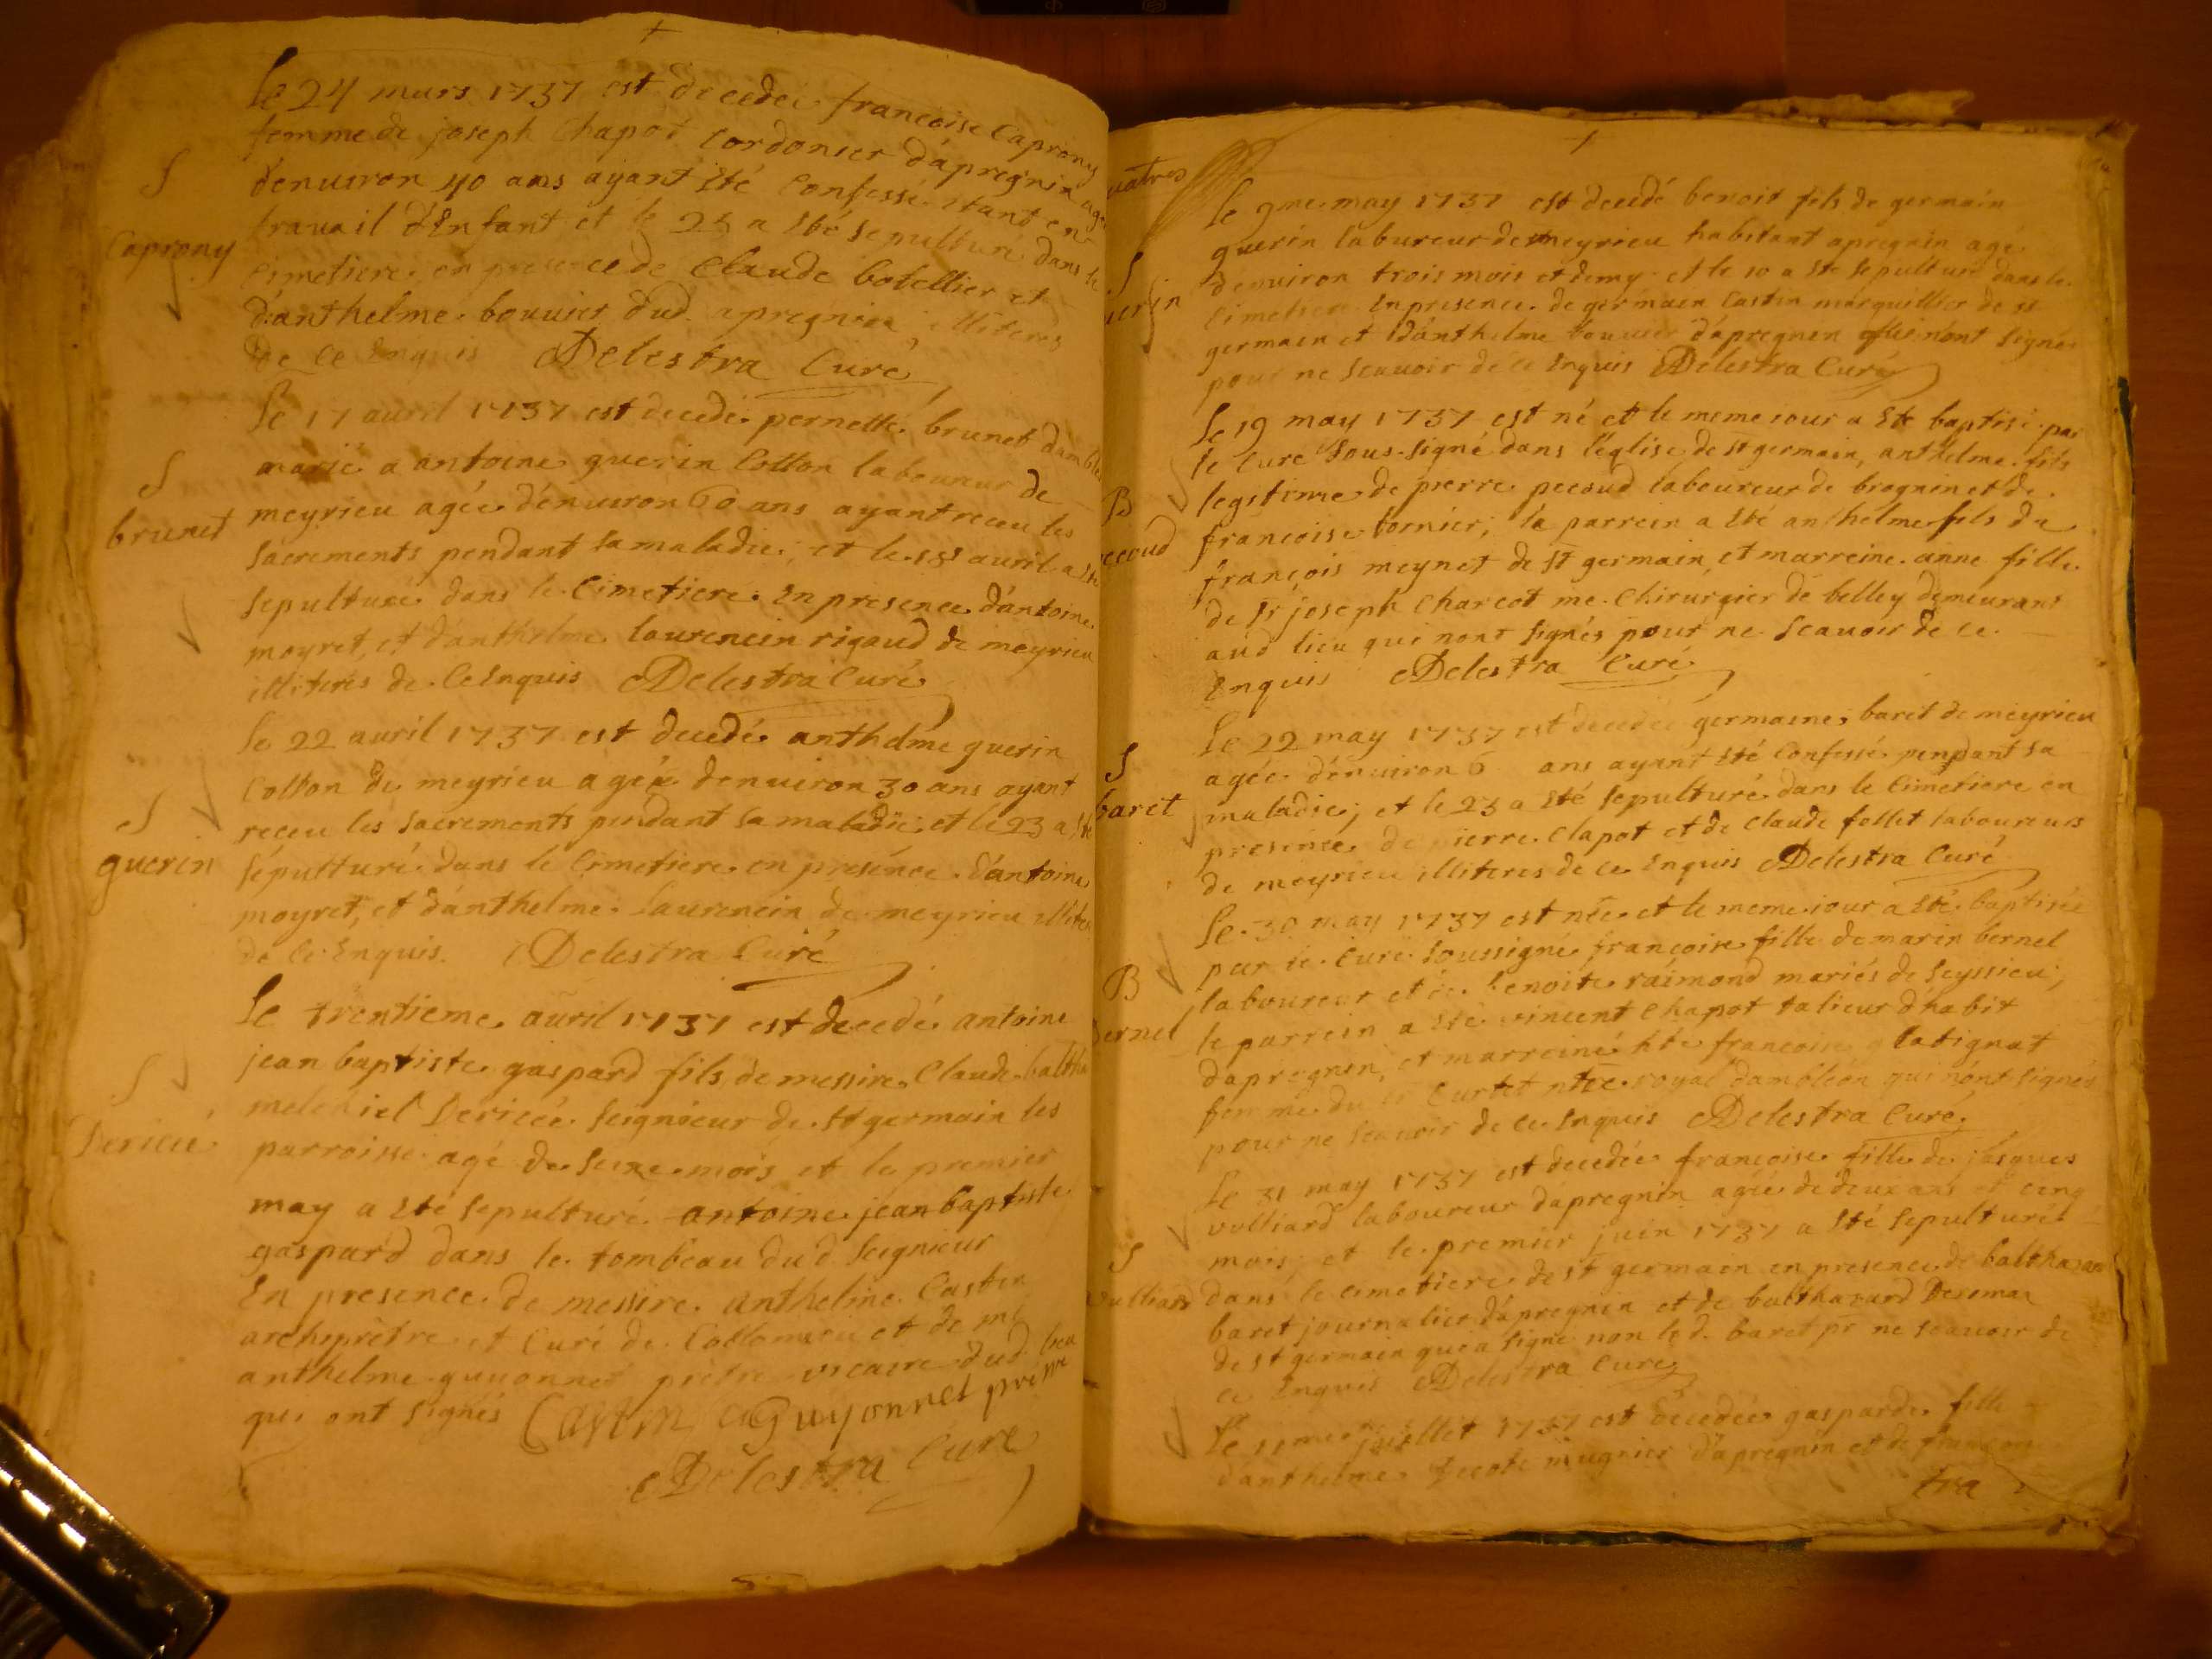 Le 24 mars 1737 est decedee francoise Caprony
femme de joseph Chapot Cordonier d'apregnin agee
d'enuiron 40 ans ayant Eté Confessée etant en
S
trauail d'Enfant et le 25 a Eté sepulturé dans le
Caprony
Cimetiere en presence de Claude botellier et
d'anthelme bouuier dud. apregnin illiteres
de ce Enquis Delestra Curé
Le 17 auril 1737 est decedé pernette brunet
mariée a antoine guerin Cotton laboureur de
S
brunet
meyrieu agée d'enuiron 60 ans ayant receu les
sacrements pendant sa maladie; et le 18 auril a Eté
sepulturée dans le Cimetiere En presence d'antoine
moyret, et d'anthelme laurencin rigaud de meyrieu
illiterés de Ce Enquis Delestra Curé
Le 22 auril 1737 est decedé anthelme guerin
Cotton de meyrieu agée denuiron 30 ans ayant
S
receu les sacrements pendant sa maladie; et le 23 a Eté
guerin
sépulturé dans le Cimetiere en présence d'antoine
moyret, et d'anthelme Laurencin de meyrieu
de Ce Enquis. Delestra Curé
Le trentieme auril 1737 est decedé antoine
jean baptiste gaspard fils de messire Claude
S
seigneur de St germain les
parroisse agé de seze mois et le premier
may a Eté sepulturé antoine jean baptiste
gaspard dans le tombeau dud Seigneur
En presence de messire anthelme Castin
archiprêtre et Curé de et de me
anthelme guuonnet prêtre vicaire dud lieu
qui ont signés Castin Guyonnet
Delestra Curé
Le 9me may 1737 est decedé benoit fils de germain
guerin laboureur de meyrieu habitant apregnin agé
S
d'enuiron trois mois et demy et le 10 a Eté sepulturé dans le
Cimetiere En presence de germain Castin marguillier de st
germain et d'anthelme bouuier d'apregnin qui n'ont signé
pour ne scauoir de ce Enquis Delestra Curé
Le 19 may 1737 est né et le meme iour a Eté baptisé par
le Curé Sous-signé dans l'église de st germain, anthelme fils
B
legitime de pierre pecoud laboureur de brognin et de
francoise tornier; le parrein a Eté anthelme fils de
françois meynet de St germain, et marreine anne fille
de Sr joseph Charcot me Chirurgier de belley demeurant
aud lieu qui nont signés pour ne Scauoir de ce
Enquis Delestra Curé
Le 22 may 1737 est decedée germaine baret de meyrieu
S
baret
agée d'enuiron 6 ans ayant Eté Confessé pendant sa
maladie; et le 23 a Eté sepulturé dans le Cimetiere en
presence de pierre Clapot et de Claude follet laboureurs
de meyrieu illiteres de ce Enquis Delestra Curé
Le 30 may 1737 est née et le meme iour a Eté baptisée
B
par le Curé Soussigné francoise fille de marin bernel
laboureur et de benoite raimond mariés de Seyssieu;
le parrein a Eté vincent Chapot talieur d'habit
dapregnin, et marreine francoise
femme du Sr Curtet royal dambleon qui n'ont signés
pour ne Scauoir de ce Enquis Delestra Curé
Le 31 may 1737 est decedée françoise fille de jasques
volliard laboureur dapregnin agée de deux ans et cinq
S
mois; et le premier juin 1737 a Eté sepulturée
dans le cimetiere de st germain en presence de balthazar
baret journalier d'apregnin et de balthazard
de st germain qui a signé non led. baret pr ne scauoir de
ce Enquis Delestra Curé
Le juillet 1737 est decedée gasparde fille
d'anthelme mugnier d'apregnin et de